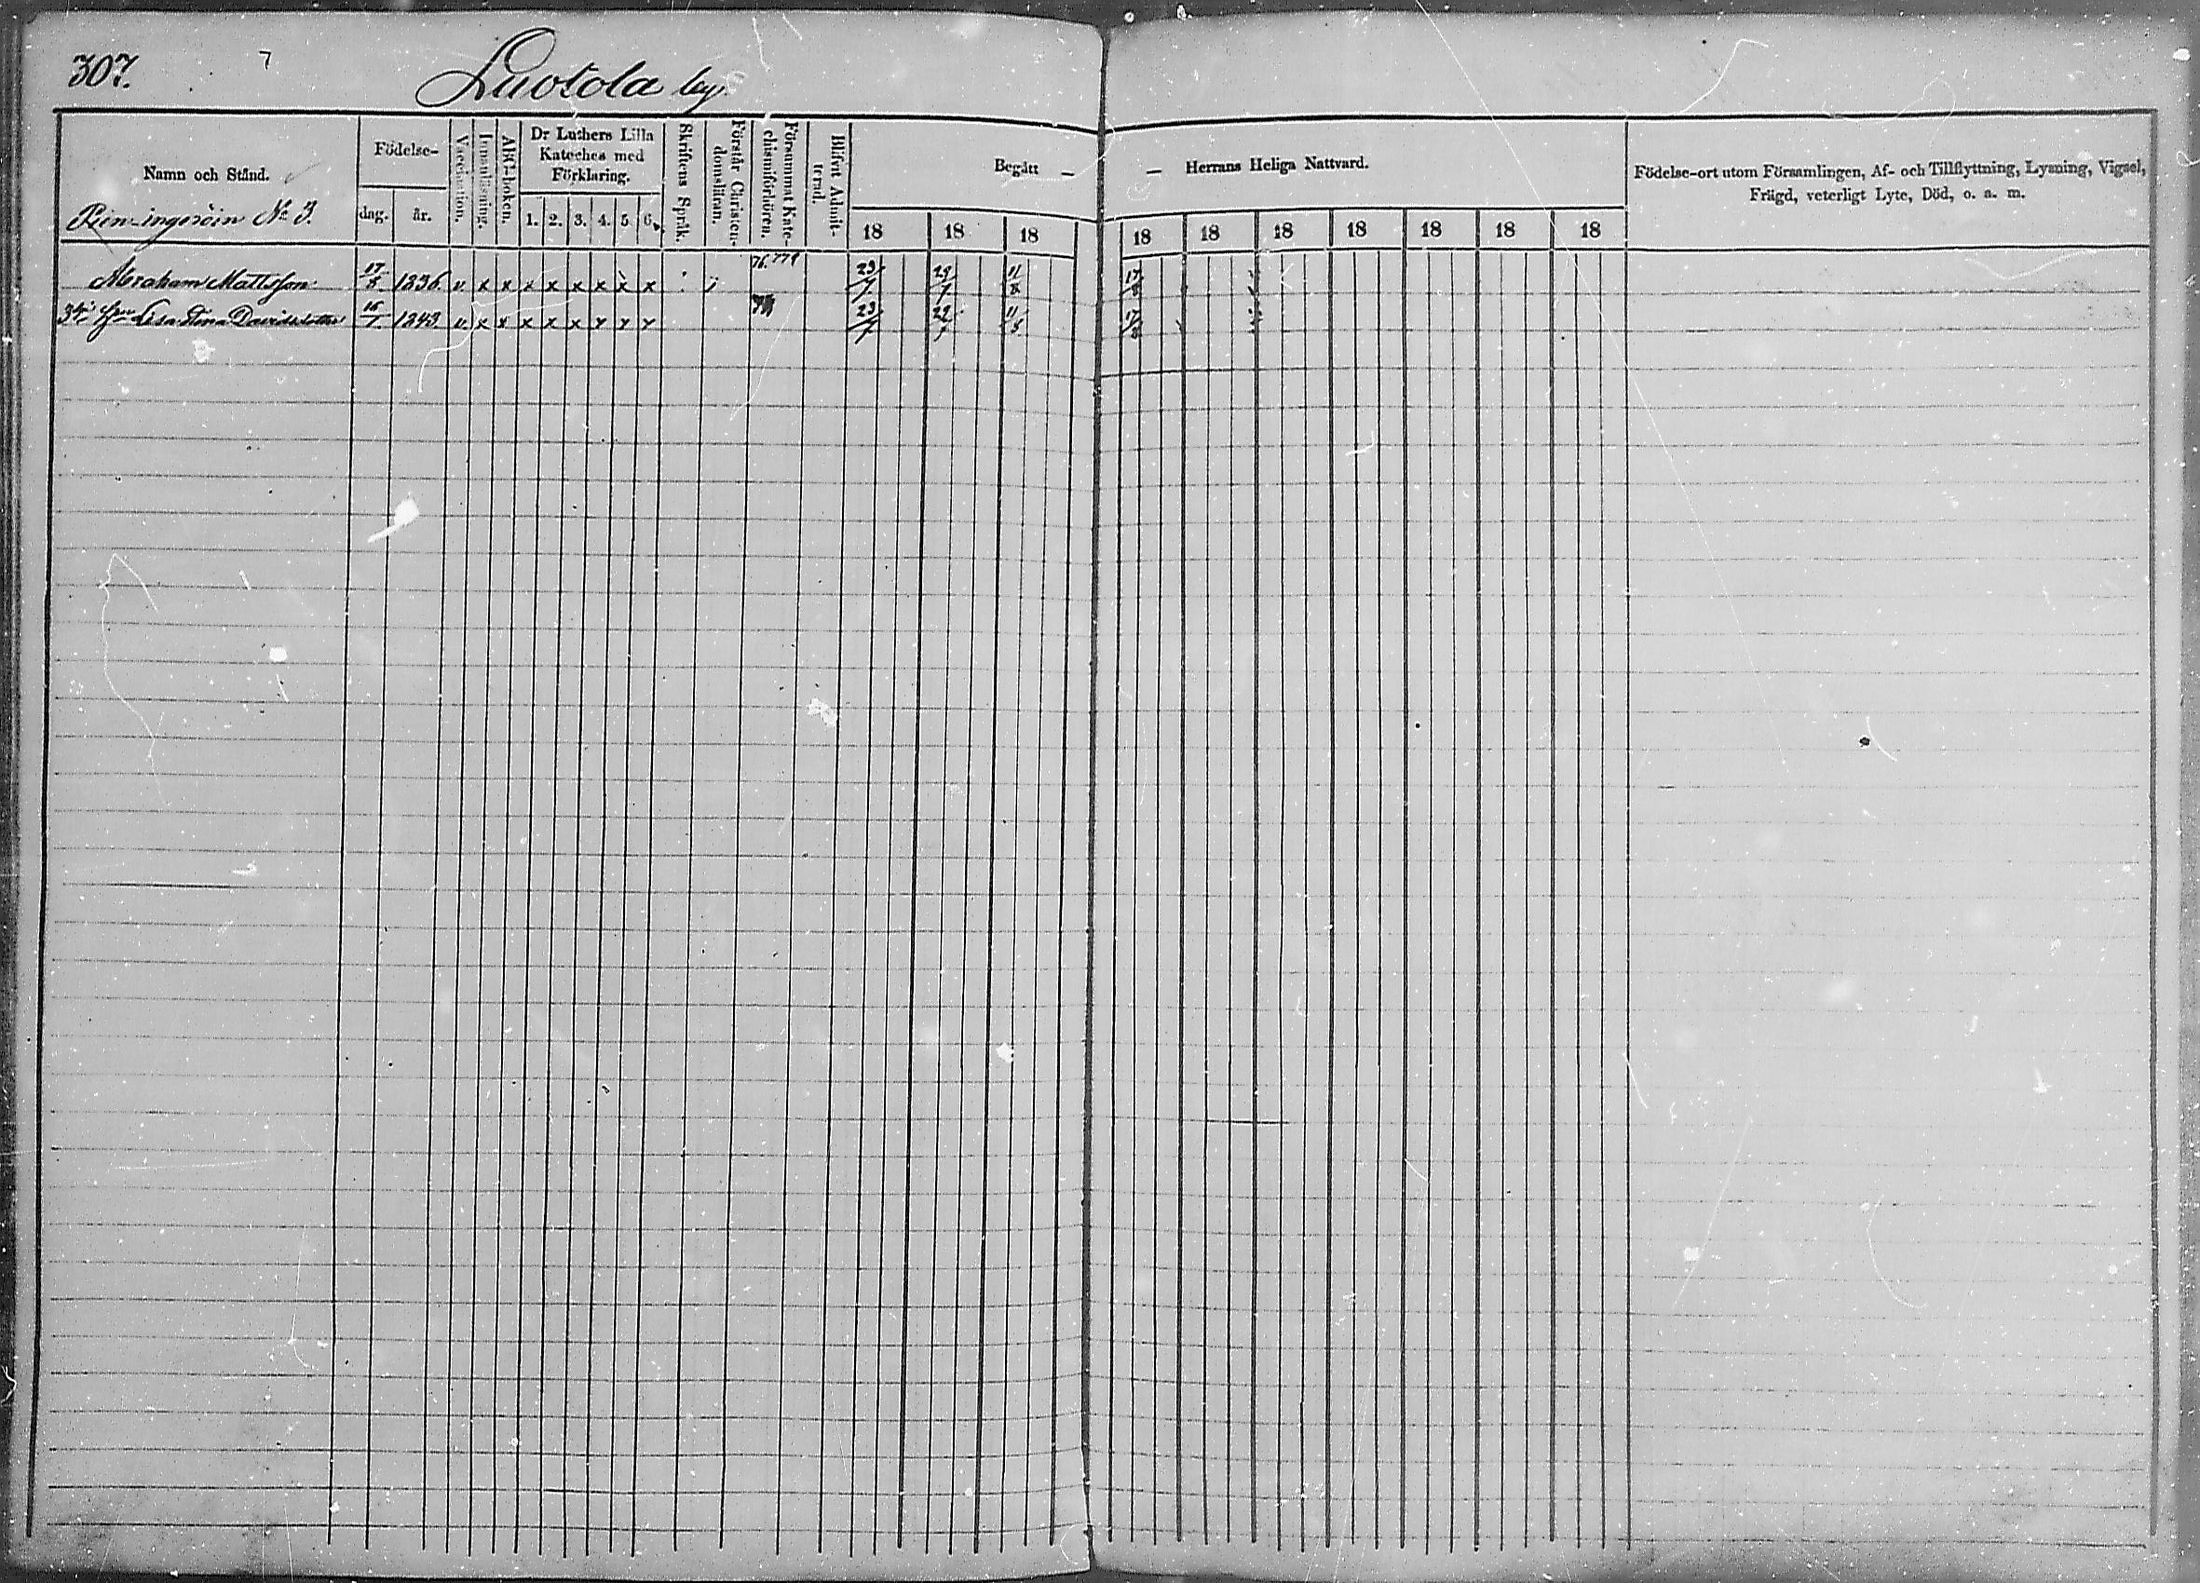 307.
7
Luotola by.
Namn och Stånd.
Födelse-
dag.
år.
Vaccination.
Innanläsning.
ABC-boken.
Dr Luthers Lilla
Kateches med
Förklaring.
1. 2. 3. 4. 5. 6.
Skriftens Språk.
Förstår Christen-
domsläran.
Försummat Kate-
chismiförhören.
Blifvit Admit-
terad.
Begått — — Herrans Heliga Nattvard.
18 18 18 18 18 18 18 18 18 18
Födelse-ort utom Församlingen, Af- och Tillflyttning, Lysning, Vigsel,
Frägd, veterligt Lyte, Död, o. a. m.
No 3.
Abraham Mattsson 17/8 1836. v x x x x x x x x 23/7 29/7 11/8 17/8
Lisa Stina Davidsdotter 16/1 1843 v x x x x x x x x 23/7 29/7 11/8 17/8